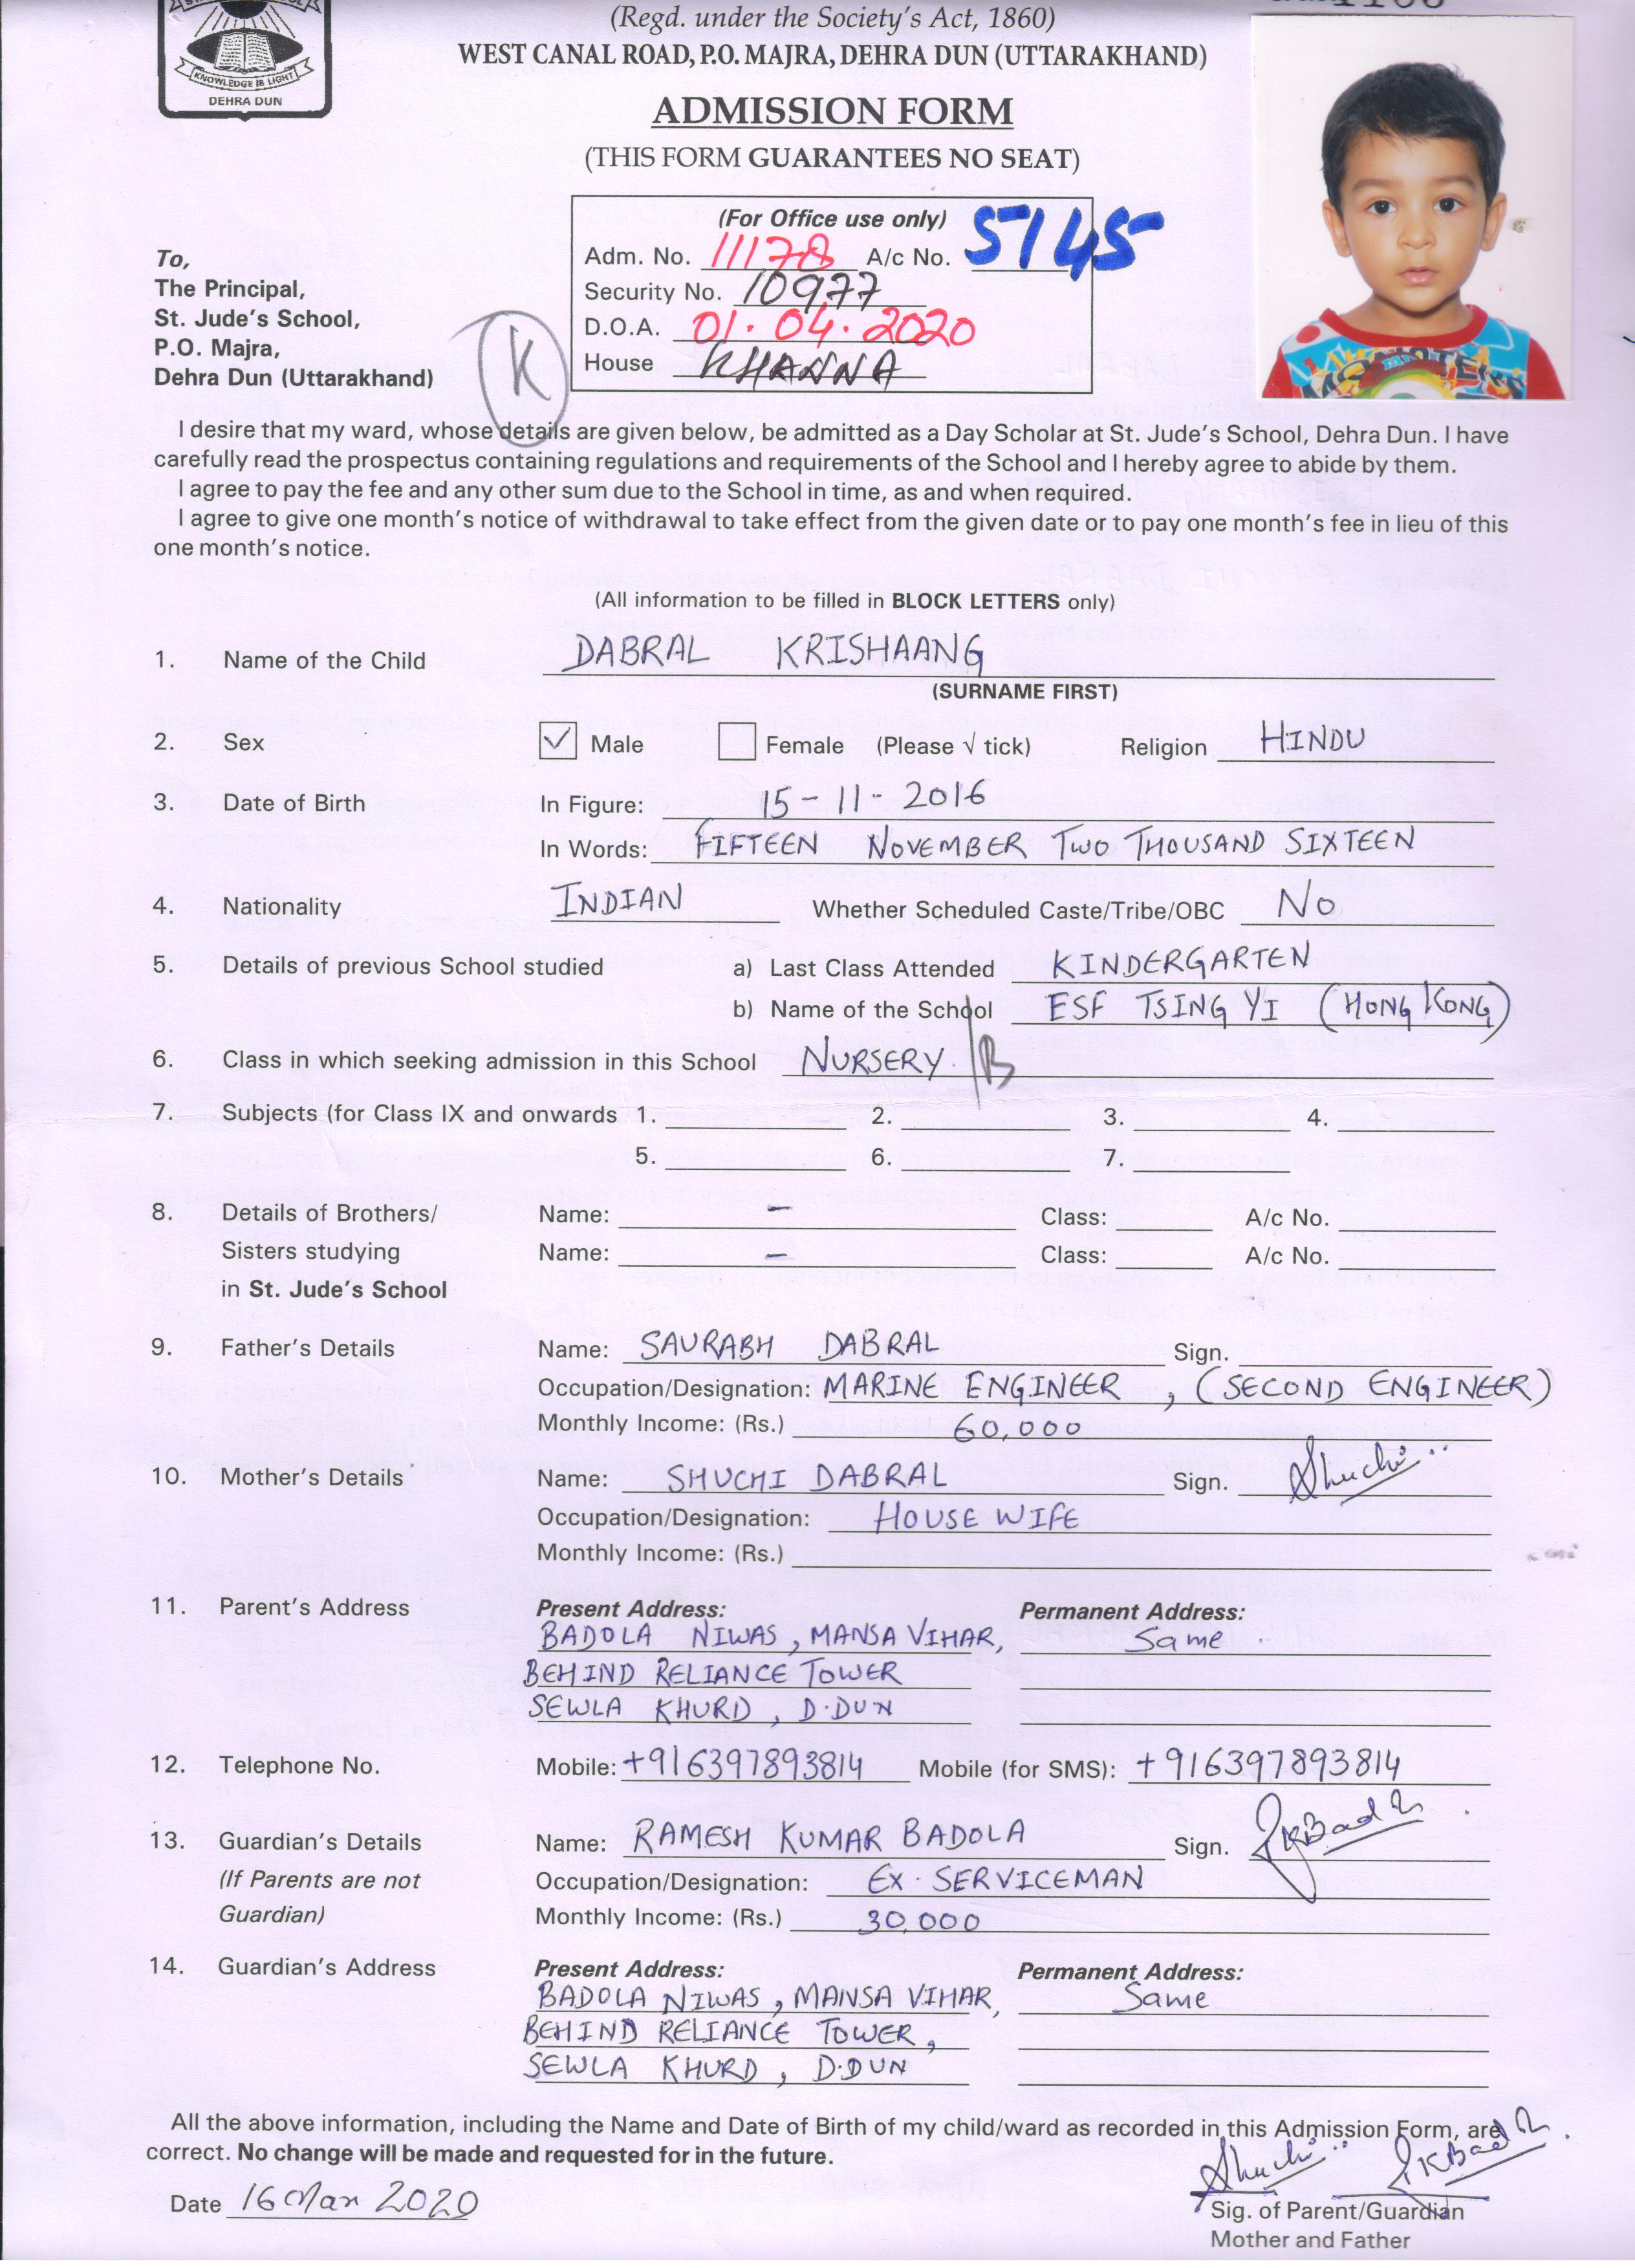 KNOWLEDGE IS LIGHT
DEHRA DUN
(Regd. under the Society's Act, 1860)
WEST CANAL ROAD, P.O. MAJRA, DEHRA DUN (UTTARAKHAND)
ADMISSION FORM
(THIS FORM GUARANTEES NO SEAT)
(For Office use only)
Adm. No. 11178 A/c No. 5145
Security No. 10977
D.O.A. 01.04.2020
House KHANNA
To,
The Principal,
St. Jude's School,
P.O. Majra,
Dehra Dun (Uttarakhand)
K
I desire that my ward, whose details are given below, be admitted as a Day Scholar at St. Jude's School, Dehra Dun. I have
carefully read the prospectus containing regulations and requirements of the School and I hereby agree to abide by them.
I agree to pay the fee and any other sum due to the School in time, as and when required.
I agree to give one month's notice of withdrawal to take effect from the given date or to pay one month's fee in lieu of this
one month's notice.
(All information to be filled in BLOCK LETTERS only)
1. Name of the Child DABRAL KRISHAANG
(SURNAME FIRST)
2. Sex ✓ Male Female (Please √ tick) Religion HINDU
3. Date of Birth In Figure: 15-11-2016
In Words: FIFTEEN NOVEMBER TWO THOUSAND SIXTEEN
4. Nationality INDIAN Whether Scheduled Caste/Tribe/OBC NO
5. Details of previous School studied a) Last Class Attended KINDERGARTEN
b) Name of the School ESF TSING YI (HONG KONG)
6. Class in which seeking admission in this School NURSERY /B
7. Subjects (for Class IX and onwards 1. 2. 3. 4.
5. 6. 7.
8. Details of Brothers/ Name: - Class: A/c No.
Sisters studying Name: - Class: A/c No.
in St. Jude's School
9. Father's Details Name: SAURABH DABRAL Sign.
Occupation/Designation: MARINE ENGINEER, (SECOND ENGINEER)
Monthly Income: (Rs.) 60,000
10. Mother's Details Name: SHUCHI DABRAL Sign. Shuchi
Occupation/Designation: HOUSE WIFE
Monthly Income: (Rs.)
11. Parent's Address Present Address: Permanent Address:
BADOLA NIWAS, MANSA VIHAR, Same
BEHIND RELIANCE TOWER
SEWLA KHURD, D.DUN
12. Telephone No. Mobile: +916397893814 Mobile (for SMS): +916397893814
13. Guardian's Details Name: RAMESH KUMAR BADOLA Sign.
(If Parents are not Occupation/Designation: EX. SERVICEMAN
Guardian) Monthly Income: (Rs.) 30,000
14. Guardian's Address Present Address: Permanent Address:
BADOLA NIWAS, MANSA VIHAR, Same
BEHIND RELIANCE TOWER,
SEWLA KHURD, D.DUN
All the above information, including the Name and Date of Birth of my child/ward as recorded in this Admission Form, are
correct. No change will be made and requested for in the future.
Shuchi
Date 16 Mar 2020
Sig. of Parent/Guardian
Mother and Father